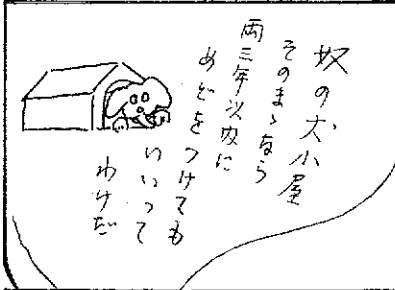 奴の犬小屋
そのまゝなら
両三年以内に
めどをつけても
いいって
わけだ